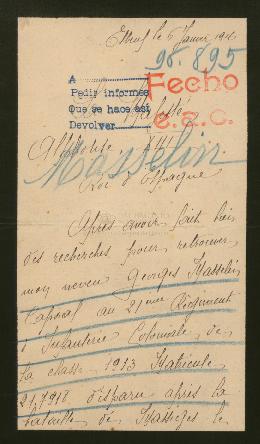 Elbeuf le 6 Janvier 1916
98.895
A
Pedir informes
Que se hace así
Devolver
Fecho
E.E.C.
Sa Majesté
Alphonse XIII
Masselin
Roi d'Espagne
Après avoir fait bien
des recherches pour retrouver
mon neveu Georges Masselin
Caporal au 21ème Régiment
d'Infanterie Coloniale de
la classe 1913 Matricule
21.7918 disparu après la
bataille de Massiges le